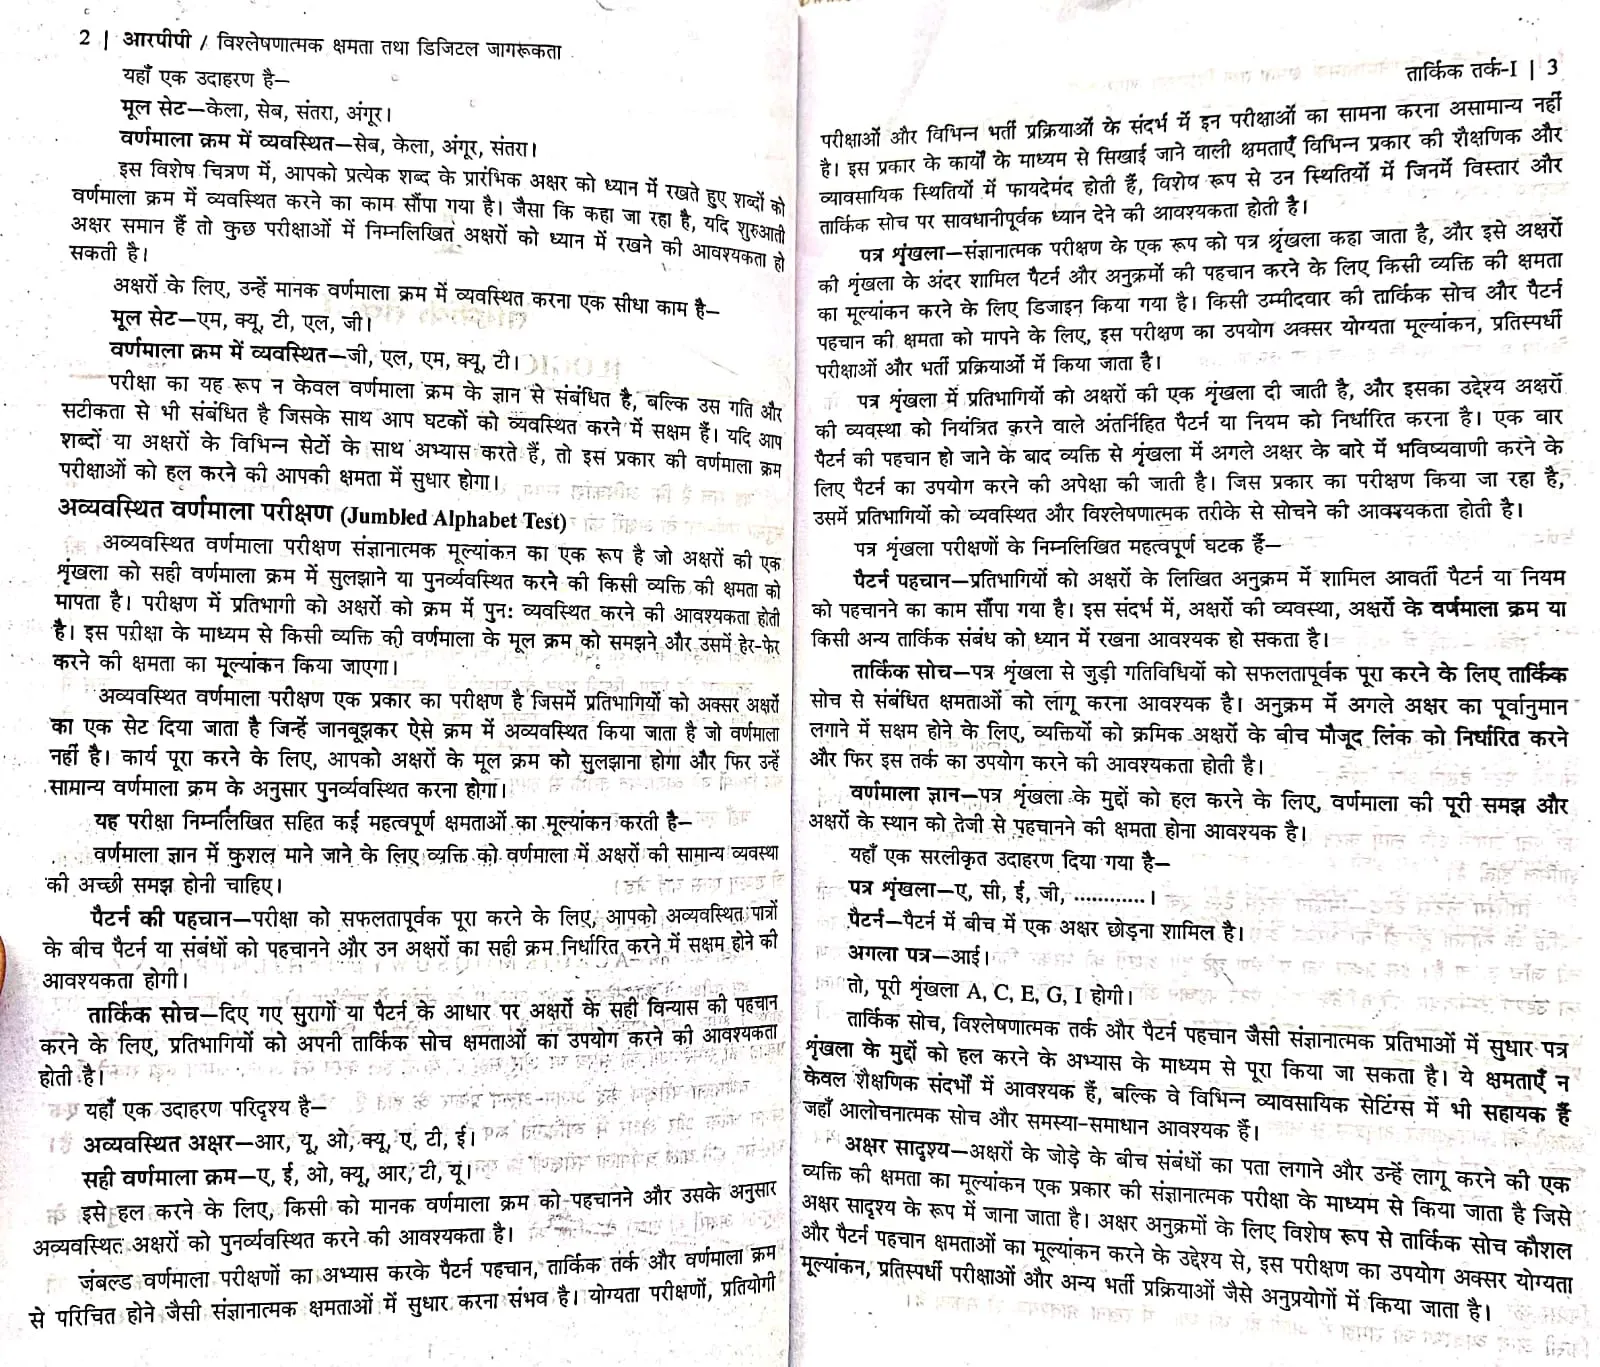 2 | आरपीपी / विश्लेषणात्मक क्षमता तथा डिजिटल जागरूकता
यहाँ एक उदाहरण है—
मूल सेट—केला, सेब, संतरा, अंगूर।
वर्णमाला क्रम में व्यवस्थित—सेब, केला, अंगूर, संतरा।
इस विशेष चित्रण में, आपको प्रत्येक शब्द के प्रारंभिक अक्षर को ध्यान में रखते हुए शब्दों को
वर्णमाला क्रम में व्यवस्थित करने का काम सौंपा गया है। जैसा कि कहा जा रहा है, यदि शुरुआती
अक्षर समान हैं तो कुछ परीक्षाओं में निम्नलिखित अक्षरों को ध्यान में रखने की आवश्यकता हो
सकती है।
अक्षरों के लिए, उन्हें मानक वर्णमाला क्रम में व्यवस्थित करना एक सीधा काम है—
मूल सेट—एम, क्यू, टी, एल, जी।
वर्णमाला क्रम में व्यवस्थित—जी, एल, एम, क्यू, टी।
परीक्षा का यह रूप न केवल वर्णमाला क्रम के ज्ञान से संबंधित है, बल्कि उस गति और
सटीकता से भी संबंधित है जिसके साथ आप घटकों को व्यवस्थित करने में सक्षम हैं। यदि आप
शब्दों या अक्षरों के विभिन्न सेटों के साथ अभ्यास करते हैं, तो इस प्रकार की वर्णमाला क्रम
परीक्षाओं को हल करने की आपकी क्षमता में सुधार होगा।
अव्यवस्थित वर्णमाला परीक्षण (Jumbled Alphabet Test)
अव्यवस्थित वर्णमाला परीक्षण संज्ञानात्मक मूल्यांकन का एक रूप है जो अक्षरों की एक
शृंखला को सही वर्णमाला क्रम में सुलझाने या पुनर्व्यवस्थित करने की किसी व्यक्ति की क्षमता को
मापता है। परीक्षण में प्रतिभागी को अक्षरों को क्रम में पुनः व्यवस्थित करने की आवश्यकता होती
है। इस परीक्षा के माध्यम से किसी व्यक्ति की वर्णमाला के मूल क्रम को समझने और उसमें हेर-फेर
करने की क्षमता का मूल्यांकन किया जाएगा।
अव्यवस्थित वर्णमाला परीक्षण एक प्रकार का परीक्षण है जिसमें प्रतिभागियों को अक्सर अक्षरों
का एक सेट दिया जाता है जिन्हें जानबूझकर ऐसे क्रम में अव्यवस्थित किया जाता है जो वर्णमाला
नहीं है। कार्य पूरा करने के लिए, आपको अक्षरों के मूल क्रम को सुलझाना होगा और फिर उन्हें
सामान्य वर्णमाला क्रम के अनुसार पुनर्व्यवस्थित करना होगा।
यह परीक्षा निम्नलिखित सहित कई महत्वपूर्ण क्षमताओं का मूल्यांकन करती है—
वर्णमाला ज्ञान में कुशल माने जाने के लिए व्यक्ति को वर्णमाला में अक्षरों की सामान्य व्यवस्था
की अच्छी समझ होनी चाहिए।
पैटर्न की पहचान—परीक्षा को सफलतापूर्वक पूरा करने के लिए, आपको अव्यवस्थित पात्रों
के बीच पैटर्न या संबंधों को पहचानने और उन अक्षरों का सही क्रम निर्धारित करने में सक्षम होने की
आवश्यकता होगी।
तार्किक सोच—दिए गए सुरागों या पैटर्न के आधार पर अक्षरों के सही विन्यास की पहचान
करने के लिए, प्रतिभागियों को अपनी तार्किक सोच क्षमताओं का उपयोग करने की आवश्यकता
होती है।
यहाँ एक उदाहरण परिदृश्य है—
अव्यवस्थित अक्षर—आर, यू, ओ, क्यू, ए, टी, ई।
सही वर्णमाला क्रम—ए, ई, ओ, क्यू, आर, टी, यू।
इसे हल करने के लिए, किसी को मानक वर्णमाला क्रम को पहचानने और उसके अनुसार
अव्यवस्थित अक्षरों को पुनर्व्यवस्थित करने की आवश्यकता है।
जंबल्ड वर्णमाला परीक्षणों का अभ्यास करके पैटर्न पहचान, तार्किक तर्क और वर्णमाला क्रम
से परिचित होने जैसी संज्ञानात्मक क्षमताओं में सुधार करना संभव है। योग्यता परीक्षणों, प्रतियोगी
तार्किक तर्क-I | 3
परीक्षाओं और विभिन्न भर्ती प्रक्रियाओं के संदर्भ में इन परीक्षाओं का सामना करना असामान्य नहीं
है। इस प्रकार के कार्यों के माध्यम से सिखाई जाने वाली क्षमताएँ विभिन्न प्रकार की शैक्षणिक और
व्यावसायिक स्थितियों में फायदेमंद होती हैं, विशेष रूप से उन स्थितियों में जिनमें विस्तार और
तार्किक सोच पर सावधानीपूर्वक ध्यान देने की आवश्यकता होती है।
पत्र शृंखला—संज्ञानात्मक परीक्षण के एक रूप को पत्र शृंखला कहा जाता है, और इसे अक्षरों
की शृंखला के अंदर शामिल पैटर्न और अनुक्रमों की पहचान करने के लिए किसी व्यक्ति की क्षमता
का मूल्यांकन करने के लिए डिजाइन किया गया है। किसी उम्मीदवार की तार्किक सोच और पैटर्न
पहचान की क्षमता को मापने के लिए, इस परीक्षण का उपयोग अक्सर योग्यता मूल्यांकन, प्रतिस्पर्धी
परीक्षाओं और भर्ती प्रक्रियाओं में किया जाता है।
पत्र शृंखला में प्रतिभागियों को अक्षरों की एक शृंखला दी जाती है, और इसका उद्देश्य अक्षरों
की व्यवस्था को नियंत्रित करने वाले अंतर्निहित पैटर्न या नियम को निर्धारित करना है। एक बार
पैटर्न की पहचान हो जाने के बाद व्यक्ति से शृंखला में अगले अक्षर के बारे में भविष्यवाणी करने के
लिए पैटर्न का उपयोग करने की अपेक्षा की जाती है। जिस प्रकार का परीक्षण किया जा रहा है,
उसमें प्रतिभागियों को व्यवस्थित और विश्लेषणात्मक तरीके से सोचने की आवश्यकता होती है।
पत्र शृंखला परीक्षणों के निम्नलिखित महत्वपूर्ण घटक हैं—
पैटर्न पहचान—प्रतिभागियों को अक्षरों के लिखित अनुक्रम में शामिल आवर्ती पैटर्न या नियम
को पहचानने का काम सौंपा गया है। इस संदर्भ में, अक्षरों की व्यवस्था, अक्षरों के वर्णमाला क्रम या
किसी अन्य तार्किक संबंध को ध्यान में रखना आवश्यक हो सकता है।
तार्किक सोच—पत्र शृंखला से जुड़ी गतिविधियों को सफलतापूर्वक पूरा करने के लिए तार्किक
सोच से संबंधित क्षमताओं को लागू करना आवश्यक है। अनुक्रम में अगले अक्षर का पूर्वानुमान
लगाने में सक्षम होने के लिए, व्यक्तियों को क्रमिक अक्षरों के बीच मौजूद लिंक को निर्धारित करने
और फिर इस तर्क का उपयोग करने की आवश्यकता होती है।
वर्णमाला ज्ञान—पत्र शृंखला के मुद्दों को हल करने के लिए, वर्णमाला की पूरी समझ और
अक्षरों के स्थान को तेजी से पहचानने की क्षमता होना आवश्यक है।
यहाँ एक सरलीकृत उदाहरण दिया गया है—
पत्र शृंखला—ए, सी, ई, जी, ............।
पैटर्न—पैटर्न में बीच में एक अक्षर छोड़ना शामिल है।
अगला पत्र—आई।
तो, पूरी शृंखला A, C, E, G, I होगी।
तार्किक सोच, विश्लेषणात्मक तर्क और पैटर्न पहचान जैसी संज्ञानात्मक प्रतिभाओं में सुधार पत्र
शृंखला के मुद्दों को हल करने के अभ्यास के माध्यम से पूरा किया जा सकता है। ये क्षमताएँ न
केवल शैक्षणिक संदर्भों में आवश्यक हैं, बल्कि वे विभिन्न व्यावसायिक सेटिंग्स में भी सहायक हैं
जहाँ आलोचनात्मक सोच और समस्या-समाधान आवश्यक हैं।
अक्षर सादृश्य—अक्षरों के जोड़े के बीच संबंधों का पता लगाने और उन्हें लागू करने की एक
व्यक्ति की क्षमता का मूल्यांकन एक प्रकार की संज्ञानात्मक परीक्षा के माध्यम से किया जाता है जिसे
अक्षर सादृश्य के रूप में जाना जाता है। अक्षर अनुक्रमों के लिए विशेष रूप से तार्किक सोच कौशल
और पैटर्न पहचान क्षमताओं का मूल्यांकन करने के उद्देश्य से, इस परीक्षण का उपयोग अक्सर योग्यता
मूल्यांकन, प्रतिस्पर्धी परीक्षाओं और अन्य भर्ती प्रक्रियाओं जैसे अनुप्रयोगों में किया जाता है।